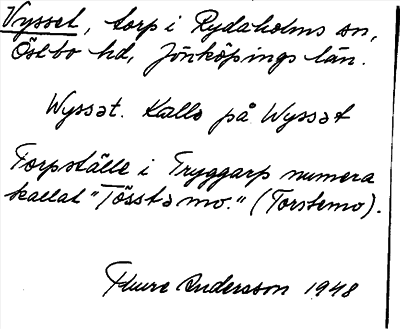 Vysset, torp i Rydaholms sn,
Östbo hd, Jönköpings län.
Wyssət. Kalle på Wyssət
Torpställe i Tryggarp numera
kallat "Tösstəmo." (Torstemo).
Thure Andersson 1948